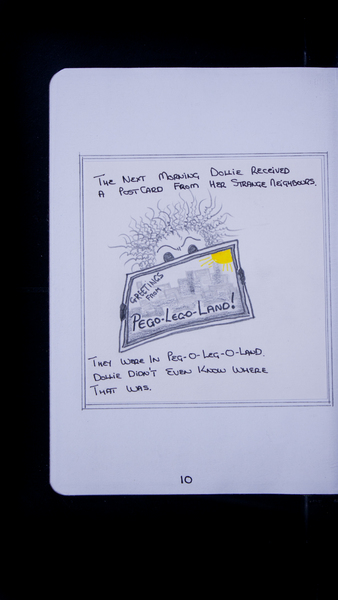 The Next Morning Dollie Received
A Postcard From Her Strange Neighbours.
Greetings
From
Pego-Lego-Land!
They Were In Peg-O-Leg-O-Land.
Dollie Didn't Even Know Where
That Was.
10